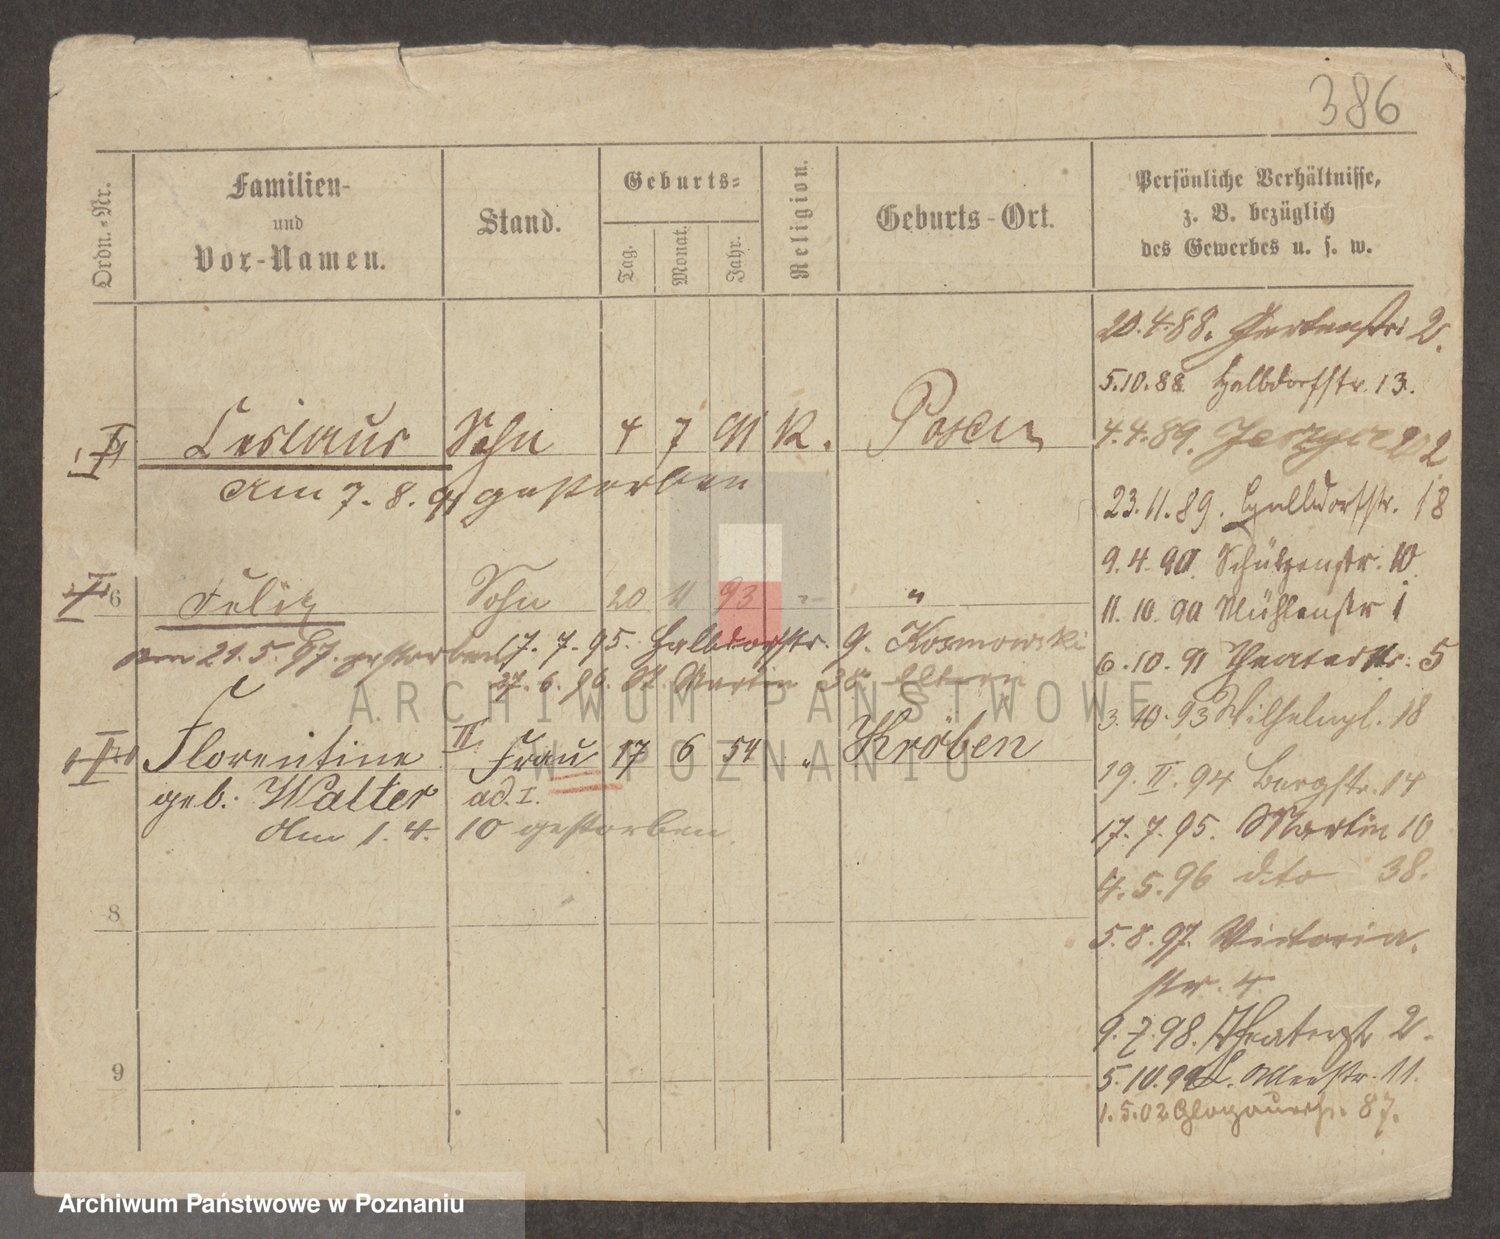 386
Ordn.-Nr.
Familien-
und
Vor-Namen.
Stand.
Geburts-
Tag.
Monat.
Jahr.
Religion.
Geburts-Ort.
Persönliche Verhältnisse,
z. B. bezüglich
des Gewerbes u. s. w.
Ceslaus Sohn 4 7 91 K. Posen
am 7. 8. 91 gestorben
6 Felix Sohn 20 93 "
am 21. 5. 97. gestorben
17. 7. 95. Halbdorfstr. 9. Kosmowski
6. 96. St Martin 38 Eltern
Florentine III. Frau 17 6 54 " Kröben
geb. Walter ad. I.
Am 1. 4. 10 gestorben
8
9
20.4.88. Gartenstr 2.
5.10.88 Halbdorfstr. 13.
4.4.89. Jerzyce 202
23.11.89. Halbdorfstr. 18
9.4.90. Schützenstr. 10.
11. 10. 90 Mühlenstr 1
6.10.91 Theaterstr. 5
3.10.93 Wilhelmpl. 18
19. II. 94 Bergstr. 14
17. 7. 95. Martin 10
4. 5. 96 dto 38.
5. 8. 97. Victoria-
str. 4.
9. 7. 98. Theaterstr 2.
5.10.99 Alleestr. 11.
1.5.02 Glogauerstr. 87.
ARCHIWUM PAŃSTWOWE
W POZNANIU
Archiwum Państwowe w Poznaniu